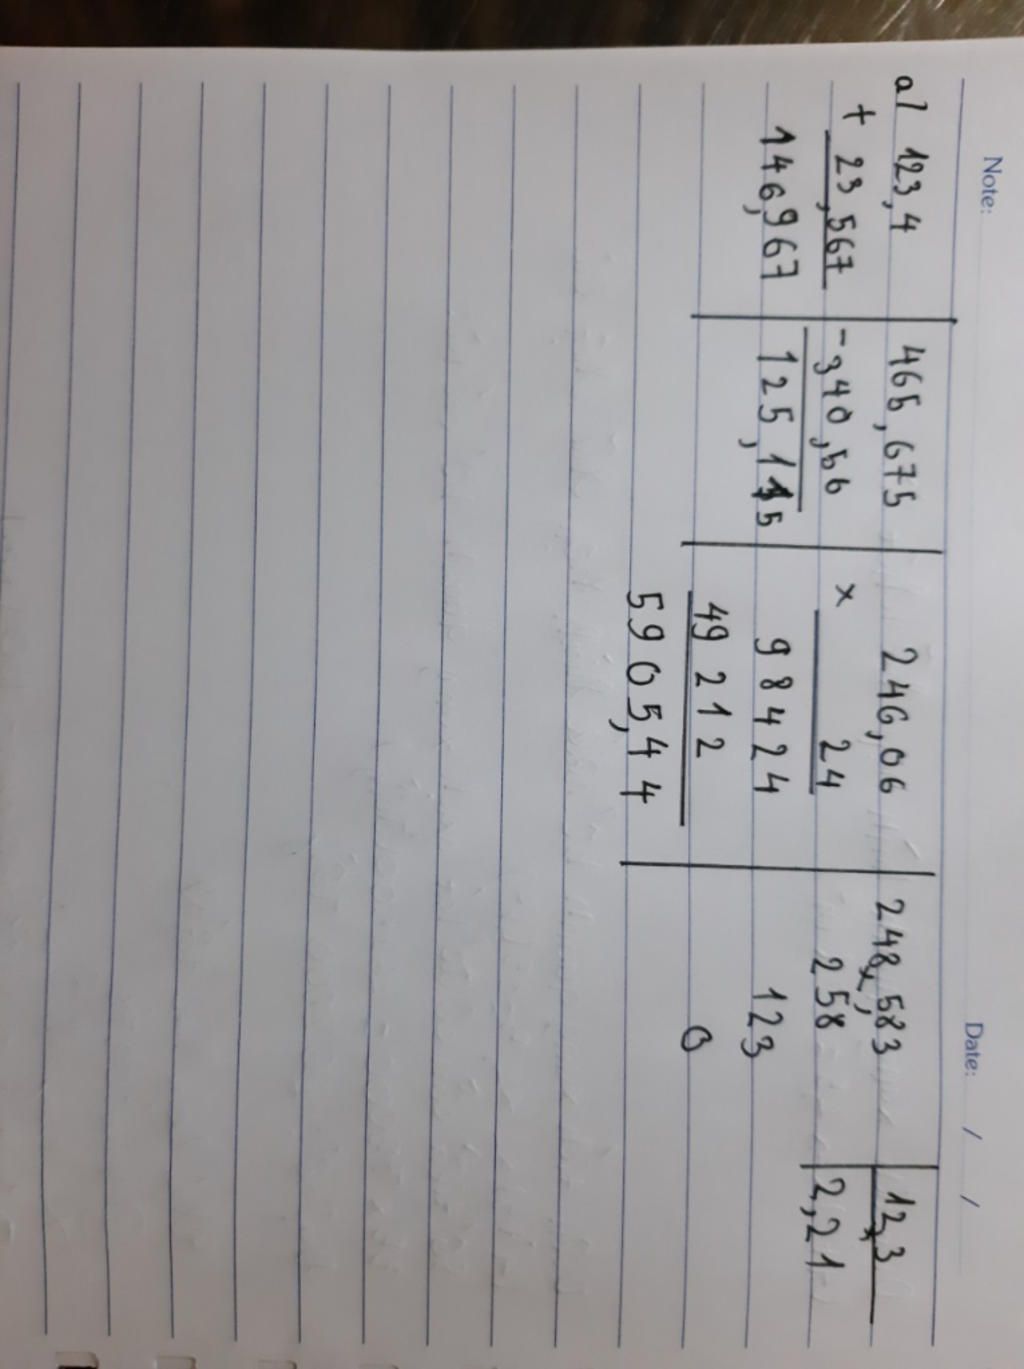 Note:
Date: / /
a) 123,4
+ 23,567
146,967
465,675
- 340,56
125,115
246,06
x 24
98424
49212
5905,44
248,583 12,3
258 2,21
123
0